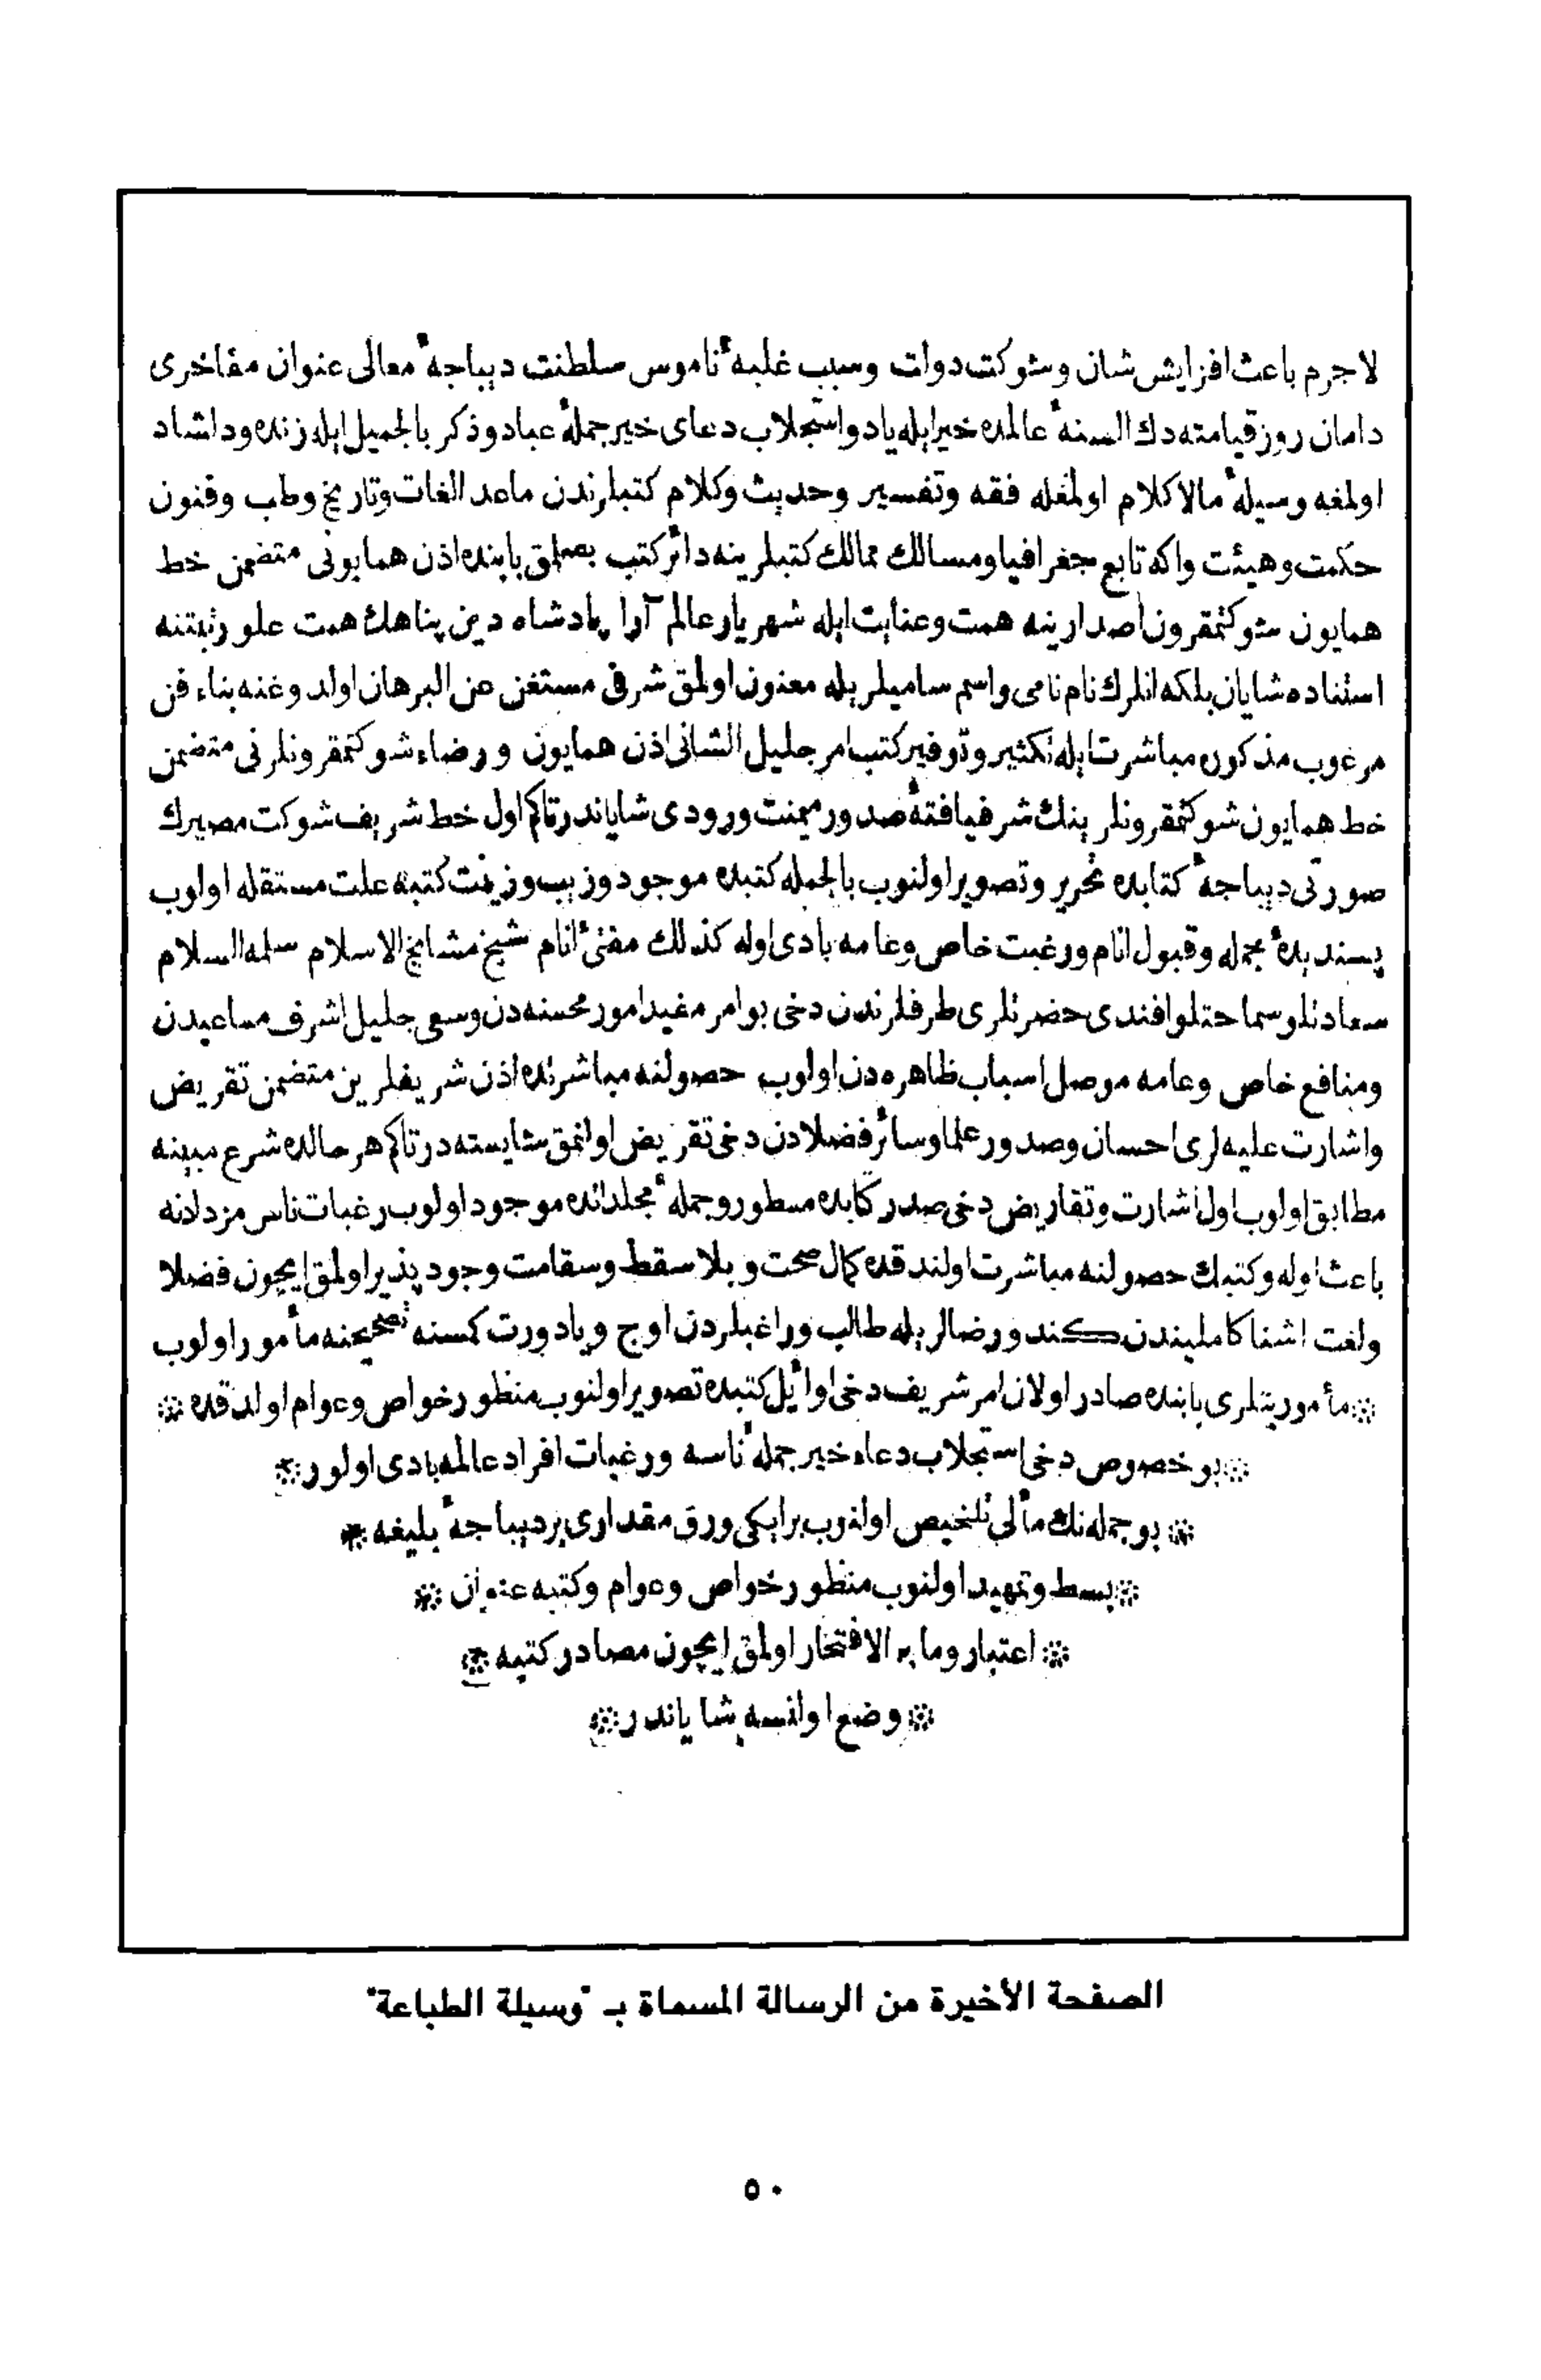 لاجرم باعث افزايش شان وشوكت دولت وسبب غلبهٔ ناموس سلطنت ديباجهٔ معالى عنوان مفاخرى
دامان روز قيامته دك السنهٔ عالمده خير ايله ياد واستجلاب دعاى خير جملهٔ عباد وذكر بالجميل ايله زنده ودلشاد
اولمغه وسيلهٔ مالاكلام اولمغله فقه وتفسير وحديث وكلام كتبلرندن ماعدا لغات وتاريخ وطب وفنون
حكمت وهيئت واكه تابع جغرافيا ومسالك ممالك كتبلرينه دائر كتب بصملق بابنده اذن همايونى متضمن خط
همايون شوكتمقرون اصدارينه همت وعنايت ايله شهريار عالم آرا پادشاه دين پناهك همت علو رتبتنه
استناده شايان بلكه انلرك نام نامى واسم ساميلريله معنون اولمق شرفى مستغن عن البرهان اولدوغنه بناء فن
مرغوب مذكوره مباشرت ايله تكثير وتوفير كتب امر جليل الشانى اذن همايون ورضاء شوكتمقرونلرنى متضمن
خط همايون شوكتمقرونلرينك شرفيافتهٔ صدور ميمنت ورودى شاياندر تاكم اول خط شريف شوكت مصيرك
صورتى ديباجهٔ كتابده تحرير وتصوير اولنوب بالجمله كتبده موجود وزيب وزينت كتبه علت مستقله اولوب
پسنديدهٔ جمله وقبول انام ورغبت خاص وعامه بادى اوله كذلك مفتئ انام شيخ مشايخ الاسلام سلمه السلام
سعادتلو سماحتلو افندى حضرتلرى طرفلرندن دخى بو امر مفيد امور محسنه دن وسعى جليل اشرف مساعيدن
ومنافع خاص وعامه موصل اسباب ظاهره دن اولوب حصولنه مباشرتده اذن شريفلرين متضمن تقريض
واشارت عليه لرى احسان وصدور علما وسائر فضلادن دخى تقريض اولنمق شايسته در تاكم هر حالده شرع مبينه
مطابق اولوب اول اشارت وتقاريض دخى صدر كتابده مسطور وجملهٔ مجلداتده موجود اولوب رغبات ناس مزدادنه
باعث اوله وكتبك حصولنه مباشرت اولندقده كمال صحت وبلا سقط وسقامت وجود پذير اولمق ايچون فضلا
ولغت اشنا كامليندن كندو رضالريله طالب وراغبلردن اوچ ويا دورت كمسنه تصحيحنه مأمور اولوب
مأموريتلرى بابنده صادر اولان امر شريف دخى اوائل كتبده تصوير اولنوب منظور خواص وعوام اولدقده
بو خصوص دخى استجلاب دعاء خير جملهٔ ناسه ورغبات افراد عالمه بادى اولور
بو جمله نك مألى تلخيص اولنوب بر ايكى ورق مقدارى بر ديباجهٔ بليغه
بسط وتمهيد اولنوب منظور خواص وعوام وكتبه عنوان
اعتبار وما به الافتخار اولمق ايچون مصادر كتبه
وضع اولنسه شاياندر
الصفحة الأخيرة من الرسالة المسماة بـ "وسيلة الطباعة"
٥٠